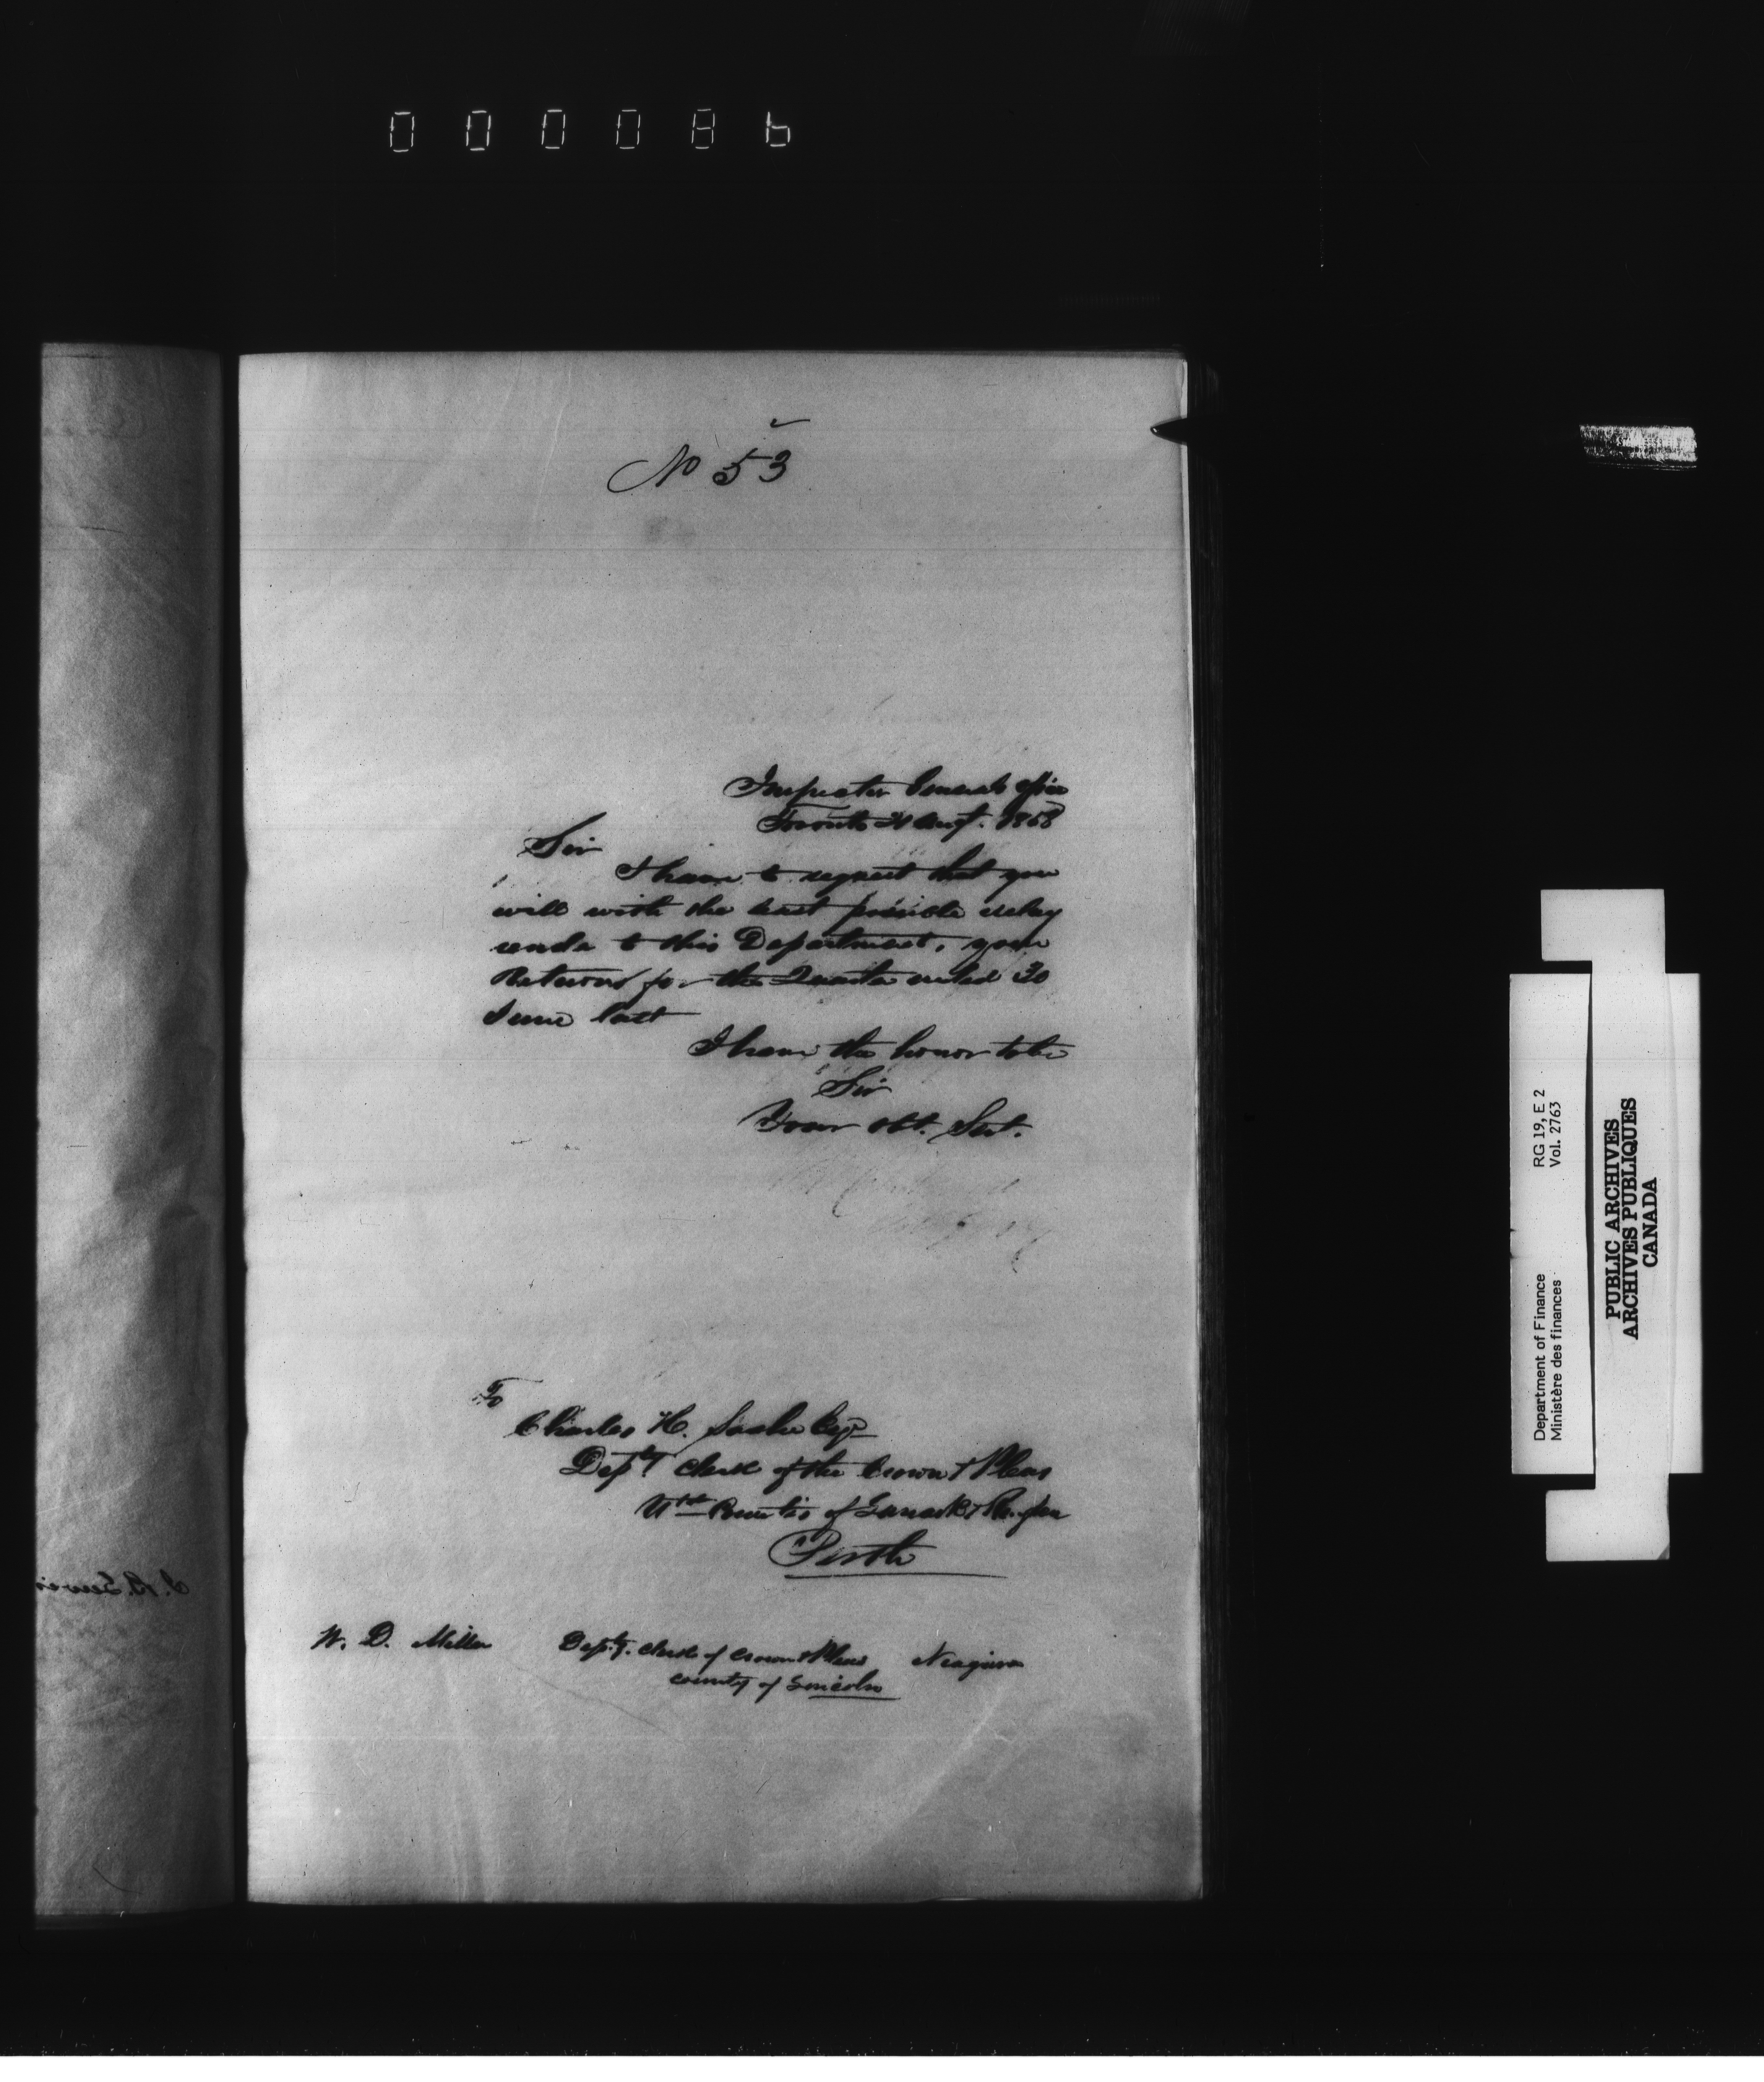 00008b
No 53
Inspector Generals Office
Toronto Augt. 1858
Sir
I have to request that you
will with the least possible delay
render to this Department, your
Returns for the Quarter ended 30
June last
I have the honor to be
Sir
Your obt. Sert.
To
Charles H. Esqr
Depty Clerk of the Crown & Pleas
Utd Counties of Lanark & Renfrew
Perth
W. D. Miller Depty. Clerk of Crown & Pleas Niagara
County of Lincoln
Department of Finance RG 19, E 2
Ministère des finances Vol. 2763
PUBLIC ARCHIVES
ARCHIVES PUBLIQUES
CANADA